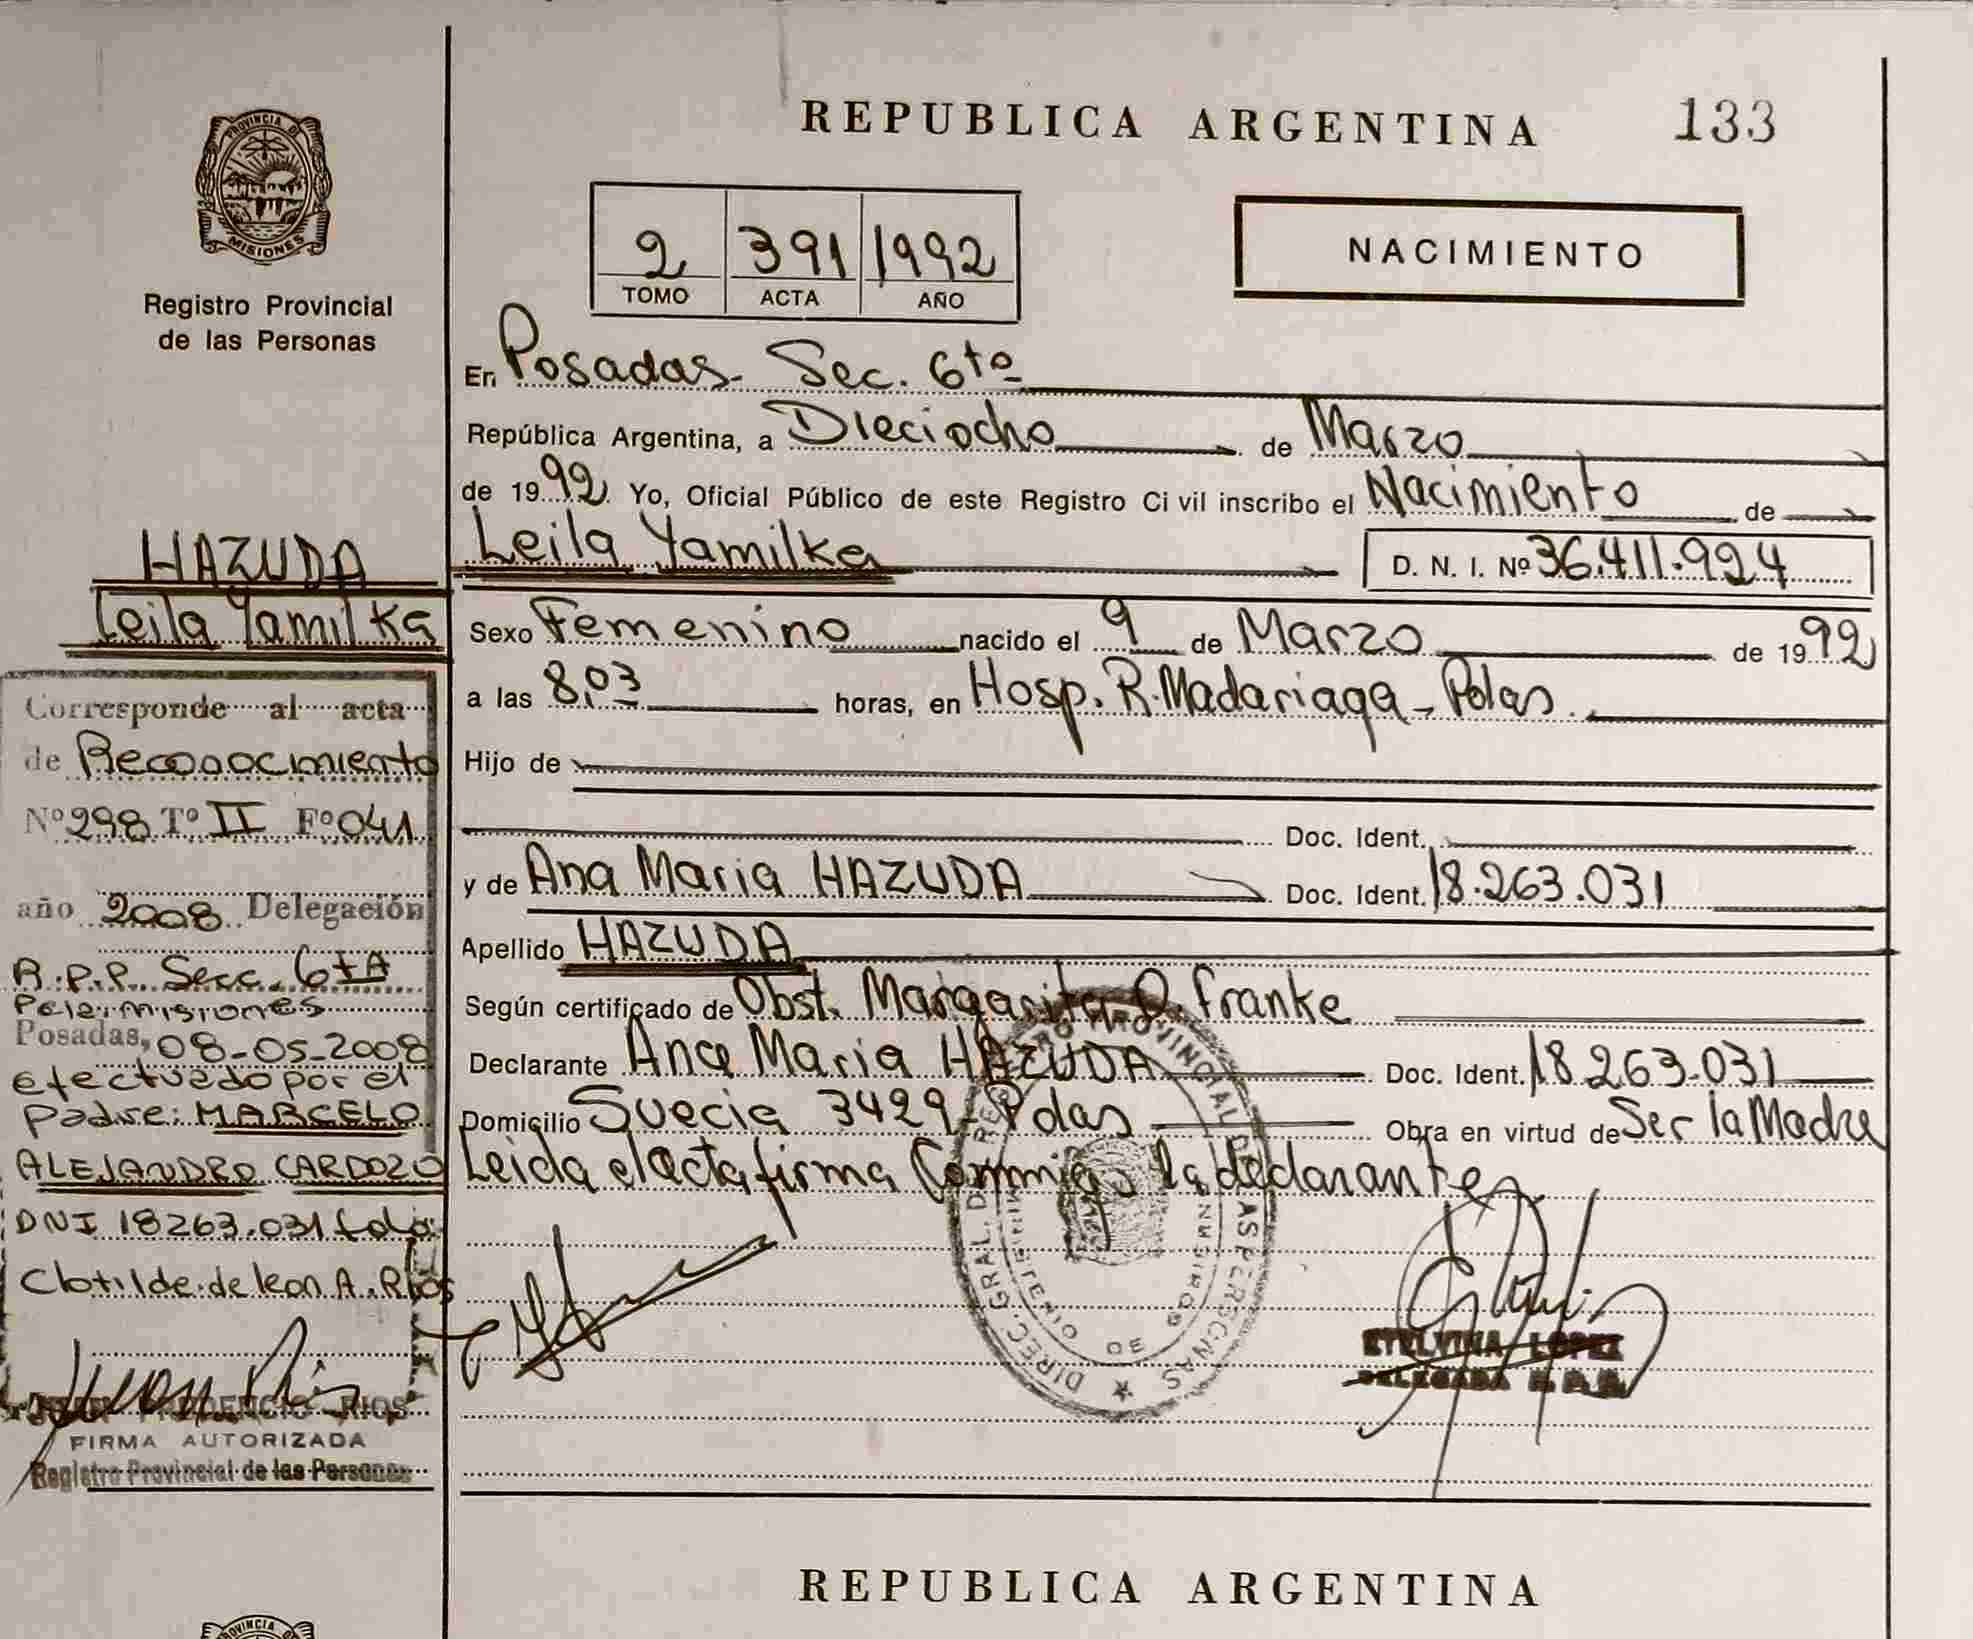 PROVINCIA DE
MISIONES
Registro Provincial
de las Personas
HAZUDA
Leila Yamilka
Corresponde al acta
de Reconocimiento
Nº 298 Tº II Fº 041
año 2008 Delegación
R.P.P. Secc. 6tA
Pcia: misiones
Posadas, 08-05-2008
efectuado por el
padre: MARCELO
ALEJANDRO CARDOZO
DNI 18263.031 fdo:
Clotilde de leon A. Rios
RIOS
FIRMA AUTORIZADA
Registro Provincial de las Personas
REPUBLICA ARGENTINA 133
2 391 1992
TOMO ACTA AÑO
NACIMIENTO
En Posadas- Sec. 6ta
República Argentina, a Dieciocho de Marzo
de 1992 Yo, Oficial Público de este Registro Civil inscribo el Nacimiento de
Leila Yamilka D. N. I. Nº 36.411.924
Sexo Femenino nacido el 9 de Marzo de 1992
a las 8,03 horas, en Hosp. R. Madariaga - Pdas.
Hijo de
Doc. Ident.
y de Ana Maria HAZUDA Doc. Ident. 18.263.031
Apellido HAZUDA
Según certificado de Obst. Margarita D. Franke
Declarante Ana Maria HAZUDA Doc. Ident. 18.263.031
Domicilio Suecia 3429 - Pdas Obra en virtud de Ser la Madre
Leida el acta firma Conmigo la declarante
DIREC. GRAL. DE REGISTRO PROVINCIAL DE LAS PERSONAS
ETELVINA LOPEZ
DELEGADA R.P.P.
REPUBLICA ARGENTINA
PROVINCIA